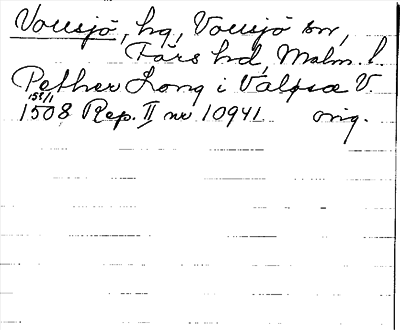 Vollsjö, hg, Vollsjö sn,
Färs hd, Malm. l.
Pether Long i Valsiø V.
15 8/1
1508 Rep. II nr 10941 orig.